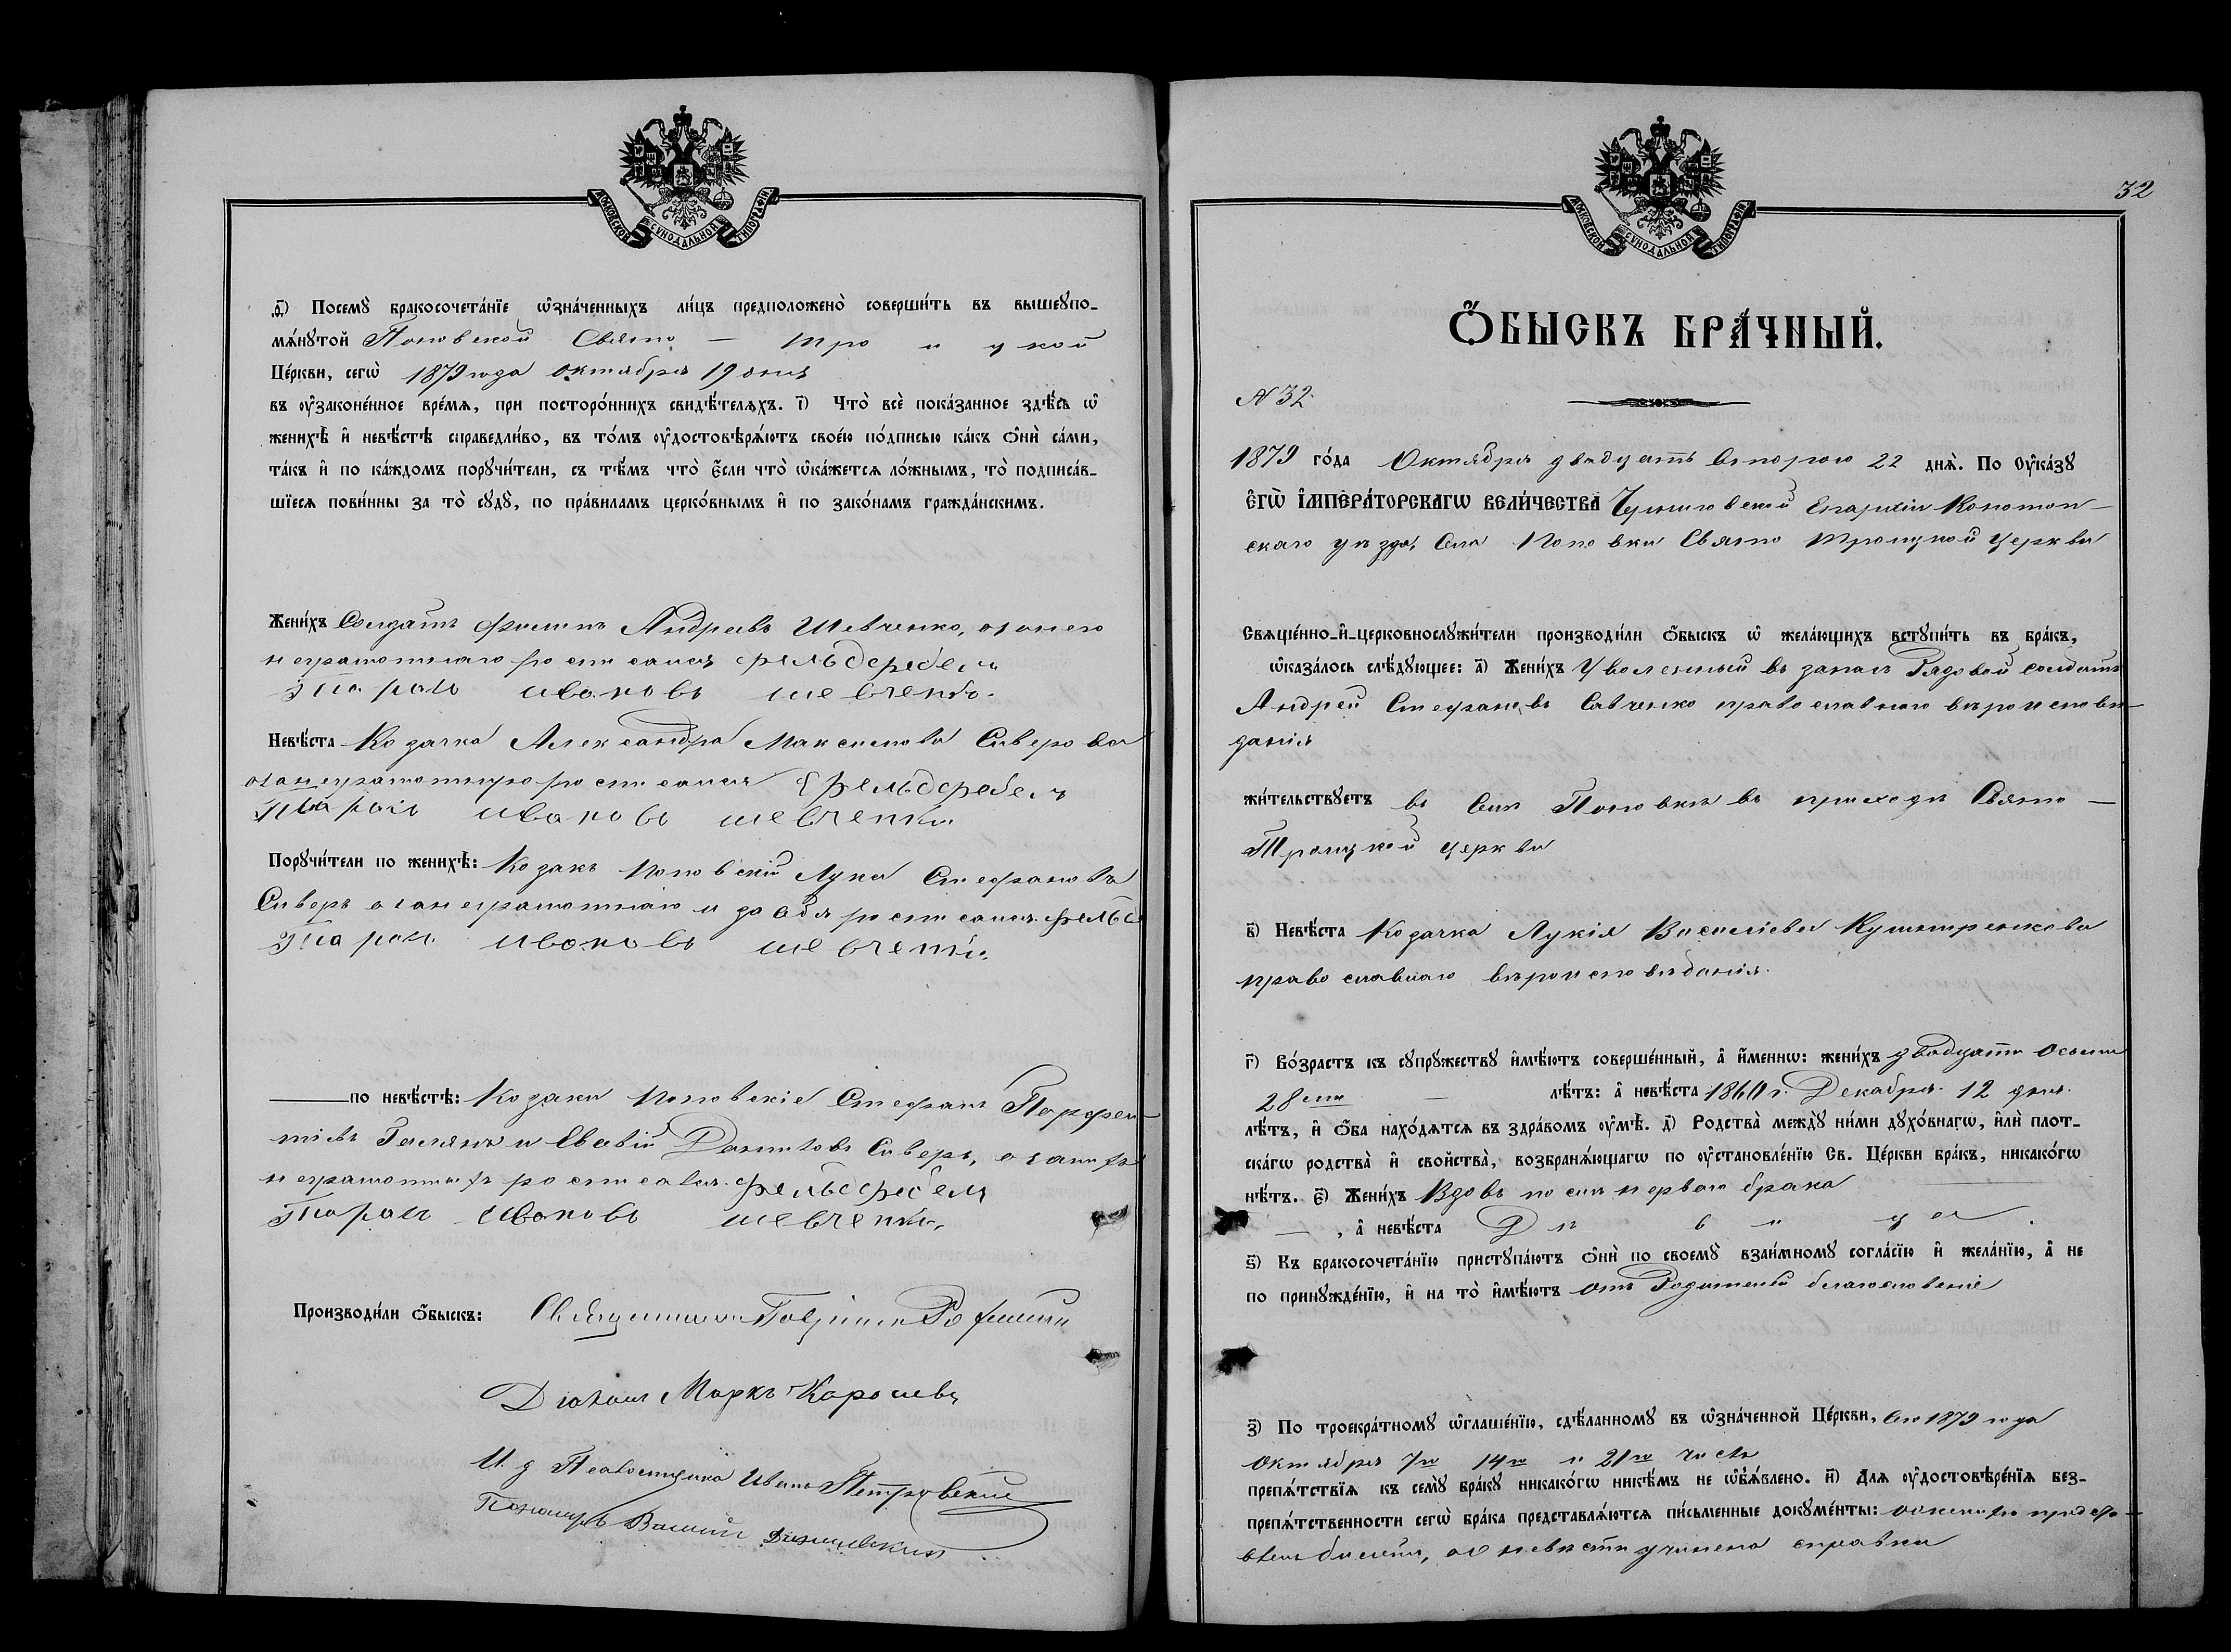 МОСКОВСКОЙ СѴНОДАЛЬНОЙ ТИПОГРАФІИ
ѳ҃) Посемꙋ̀ бракосочета́нїе ѡ҆зна́ченныхъ ли́цъ предположено̀ соверши́ть въ вышеꙋпо-
мѧ́нꙋтой Поповской Свято — Троицкой
Це́ркви, сегѡ̀ 1879 года Октября 19 дня
въ ᲂу҆законе́нное вре́мѧ, при посторо́ннихъ свидѣ́телѧхъ. і҃) Что̀ всѐ пока́занное здѣ́сь ѡ҆
женихѣ̀ и҆ невѣ́стѣ справедли́во, въ то́мъ ᲂу҆достовѣрѧ́ютъ свое́ю по́дписью ка́къ ѻ҆нѝ са́ми,
та́къ и҆ по ка́ждомъ порꙋчи́тели, съ тѣ́мъ что̀ є҆́сли что̀ ѡ҆ка́жетсѧ ло́жнымъ, то̀ подписа́в-
шїесѧ пови́нны за то̀ сꙋдꙋ̀, по пра́виламъ церко́внымъ и҆ по зако́намъ гражда́нскимъ.
Жени́хъ Солдатъ Филипъ Андреевъ Шевченко, а за него
неграмотнаго росписался фельдфебель
Тарасъ Ивановъ Шевченко.
Невѣ́ста Козачка Александра Максимова Сиверова
а за неграмотную росписался фельдфебель
Тарасъ Ивановъ Шевченко
Порꙋчи́тели по женихѣ̀: Козакъ Поповскій Лука Стефановъ
Сиверъ а за неграмотнаго и за себя росписался фельд
Тарасъ Ивановъ Шевченко.
по невѣ́стѣ: Козаки Поповскіе Стефанъ Парфен-
тіевъ и Даниловъ Сиверъ, а за нихъ
неграмотныхъ росписался фельдфебель
Тарасъ Ивановъ Шевченко.
Производи́ли ѻ҆́быскъ: Священникъ Гавріилъ
Діаконъ Маркъ Королевъ
И. д. Псаломщика Иванъ Петровскій
Пономарь
МОСКОВСКОЙ СѴНОДАЛЬНОЙ ТИПОГРАФІИ
32
Ѻ҆́БЫСКЪ БРА́ЧНЫЙ.
№ 32.
1879 го́да Октября двадцать второго 22 днѧ̀. По ᲂу҆ка́зꙋ
Є҆ГѠ̀ И҆МПЕРА́ТОРСКАГѠ ВЕЛИ́ЧЕСТВА Черниговской Епархіи Конотоп-
скаго уѣзда, Села Поповки Свято Троицкой Церкви
Свѧще́нно-и҆-церковнослꙋжи́тели производи́ли ѻ҆́быскъ ѡ҆ жела́ющихъ встꙋпи́ть въ бра́къ,
ѡ҆каза́лось слѣ́дꙋющее: а҃) Жени́хъ Уволенный въ запасъ Рядовой солдатъ
Андрей Стефановъ Савченко православнаго вѣроисповѣ-
данія
жи́тельствꙋетъ въ Селѣ Поповкѣ въ приходѣ Свято —
Троицкой Церкви
в҃) Невѣ́ста Козачка Лукія Василіева
православнаго вѣроисповѣданія.
г҃) Во́зрастъ къ сꙋпрꙋ́жествꙋ и҆мѣ́ютъ соверше́нный, а҆ и҆́меннѡ: жени́хъ двадцати осьми
28ми — лѣ́тъ: а҆ невѣ́ста 1860 г. Декабря 12 дня.
лѣ́тъ, и҆ ѻ҆́ба нахо́дѧтсѧ въ здра́вомъ ᲂу҆мѣ̀. д҃) Родства̀ междꙋ̀ ни́ми дꙋхо́внагѡ, и҆лѝ плот-
ска́гѡ родства̀ и҆ свойства̀, возбранѧ́ющагѡ по ᲂу҆становле́нїю Св. Це́ркви бра́къ, никако́гѡ
нѣ́тъ. є҃) Жени́хъ Вдовъ послѣ перваго брака
— , а҆ невѣ́ста Дѣвица.
ѕ҃) Къ бракосочета́нїю пристꙋпа́ютъ ѻ҆нѝ по своемꙋ̀ взаи́мномꙋ согла́сїю и҆ жела́нїю, а҆ не
по принꙋжде́нїю, и҆ на то̀ и҆мѣ́ютъ отъ Родителей благословеніе
з҃) По троекра́тномꙋ ѡ҆глаше́нїю, сдѣ́ланномꙋ въ ѡ҆зна́ченной Це́ркви, сего 1879 года
Октября 7го 14го и 21го числъ
препѧ́тствїѧ къ семꙋ̀ бра́кꙋ никако́гѡ никѣ́мъ не ѡ҆б̾ѧ́влено. и҃) Длѧ ᲂу҆достовѣре́нїѧ без-
препѧ́тственности сегѡ̀ бра́ка представлѧ́ютсѧ пи́сьменные докꙋме́нты: о женихѣ предста-
вленъ билетъ, о невѣстѣ учинена справка